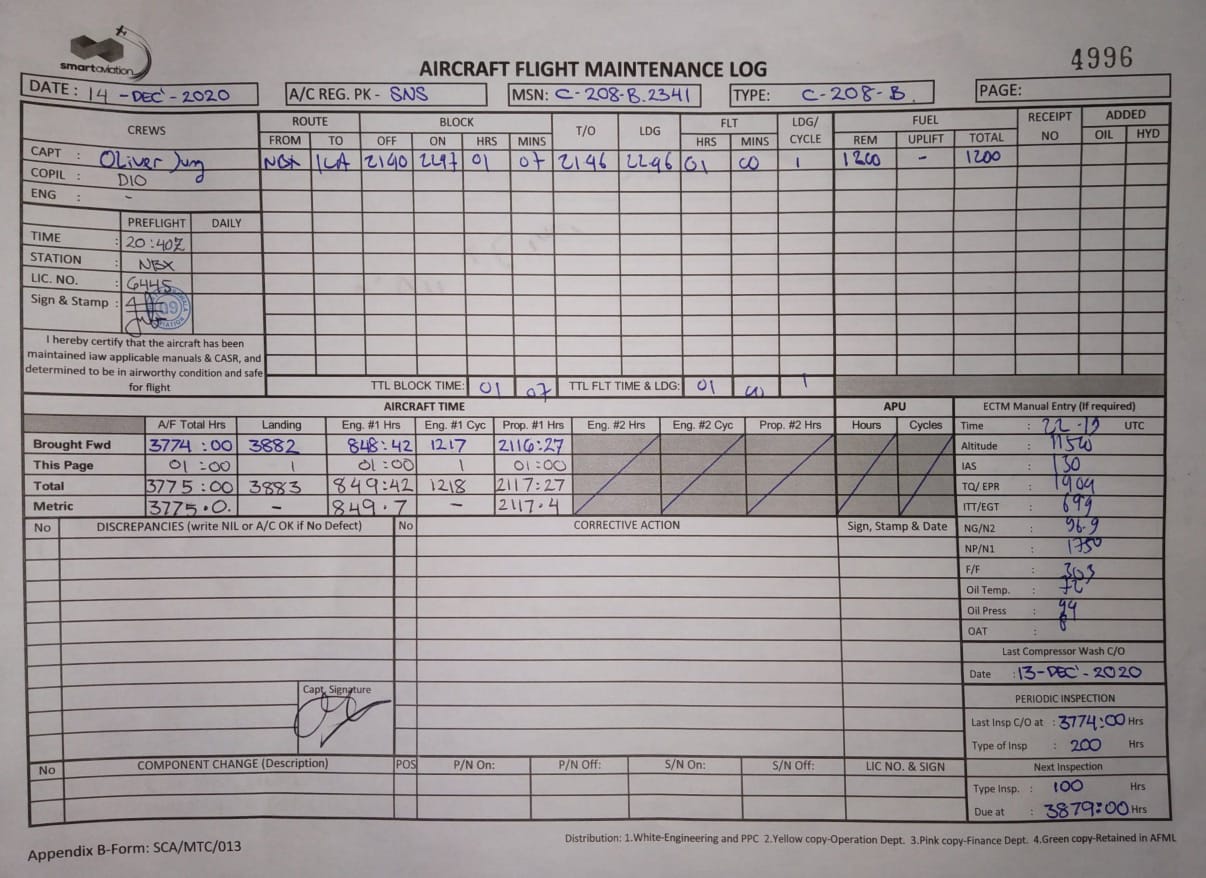 smartaviation
4996
AIRCRAFT FLIGHT MAINTENANCE LOG
DATE : 14 -DEC'- 2020 A/C REG. PK - SNS MSN: C-208-B.2341 TYPE: C-208-B. PAGE:
CREWS ROUTE BLOCK T/O LDG FLT LDG/ CYCLE FUEL RECEIPT NO ADDED
FROM TO OFF ON HRS MINS HRS MINS REM UPLIFT TOTAL OIL HYD
CAPT : Oliver Jung NBX ILA 2140 2247 01 07 2146 2246 01 00 1 1200 - 1200
COPIL : DIO
ENG : -
PREFLIGHT DAILY
TIME : 20:40Z
STATION : NBX
LIC. NO. : 6445
Sign & Stamp : 09
I hereby certify that the aircraft has been
maintained iaw applicable manuals & CASR, and
determined to be in airworthy condition and safe
for flight
TTL BLOCK TIME: 01 07 TTL FLT TIME & LDG: 01 00 1
AIRCRAFT TIME APU ECTM Manual Entry (If required)
A/F Total Hrs Landing Eng. #1 Hrs Eng. #1 Cyc Prop. #1 Hrs Eng. #2 Hrs Eng. #2 Cyc Prop. #2 Hrs Hours Cycles Time : UTC
Brought Fwd 3774 :00 3882 848:42 1217 2116:27 Altitude :
This Page 01 :00 1 01:00 1 01:00 IAS : 130
Total 3775 :00 3883 849:42 1218 2117:27 TQ/ EPR : 1904
Metric 3775.0. - 849.7 - 2117.4 ITT/EGT : 699
No DISCREPANCIES (write NIL or A/C OK if No Defect) No CORRECTIVE ACTION Sign, Stamp & Date NG/N2 : 96.9
NP/N1 : 1750
F/F : 303
Oil Temp. : 72
Oil Press : 94
OAT : 8
Last Compressor Wash C/O
Date :13-DEC'-2020
Capt, Signature
PERIODIC INSPECTION
Last Insp C/O at : 3774:00 Hrs
Type of Insp : 200 Hrs
No COMPONENT CHANGE (Description) POS P/N On: P/N Off: S/N On: S/N Off: LIC NO. & SIGN Next Inspection
Type Insp. : 100 Hrs
Due at : 3879:00 Hrs
Distribution: 1.White-Engineering and PPC 2.Yellow copy-Operation Dept. 3.Pink copy-Finance Dept. 4.Green copy-Retained in AFML
Appendix B-Form: SCA/MTC/013